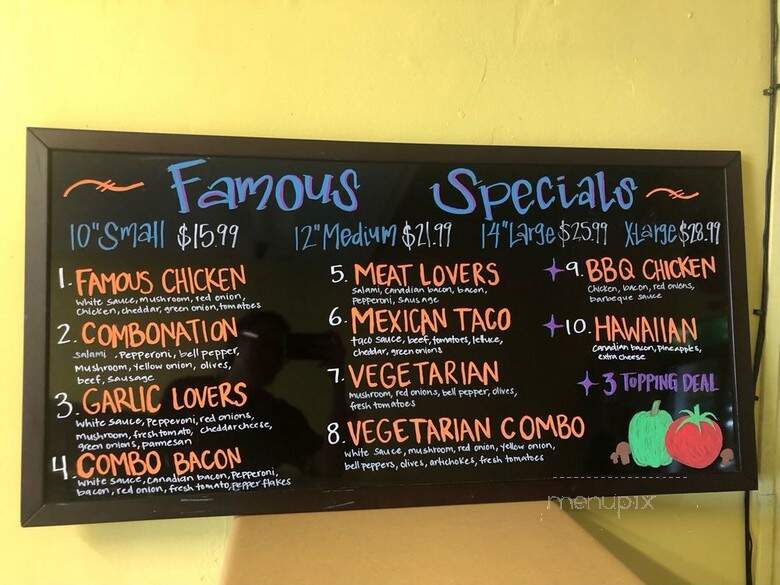 Famous Specials
10" Small $15.99 12" Medium $21.99 14" Large $25.99 XLarge $28.99
1. FAMOUS CHICKEN
White sauce, mushroom, red onion,
Chicken, cheddar, green onion, tomatoes
2. COMBONATION
salami . Pepperoni, bell pepper,
Mushroom, Yellow onion, olives,
beef, sausage
3. GARLIC LOVERS
White sauce, Pepperoni, red onions,
mushroom, fresh tomato, cheddar cheese,
green onions, parmesan
4. COMBO BACON
White sauce, Canadian bacon, Pepperoni,
bacon, red onion, fresh tomato, Pepper flakes
5. MEAT LOVERS
Salami, Canadian bacon, bacon,
Pepperoni, Sausage
6. MEXICAN TACO
taco sauce, beef, tomatoes, lettuce,
cheddar, green onions
7. VEGETARIAN
Mushroom, red onions, bell pepper, olives,
fresh tomatoes
8. VEGETARIAN COMBO
White sauce, mushroom, red onion, Yellow onion,
bell peppers, olives, artichokes, fresh tomatoes
9. BBQ CHICKEN
Chicken, bacon, red onions,
barbeque sauce
10. HAWAIIAN
Canadian bacon, pineapples,
extra cheese
3 TOPPING DEAL
menupix